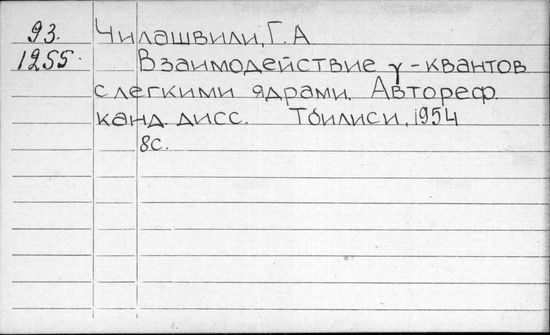 93. Чилашвили, Г. А
1255. Взаимодействие γ-квантов
с легкими ядрами. Автореф.
канд. дисс. Тбилиси, 1954
8с.